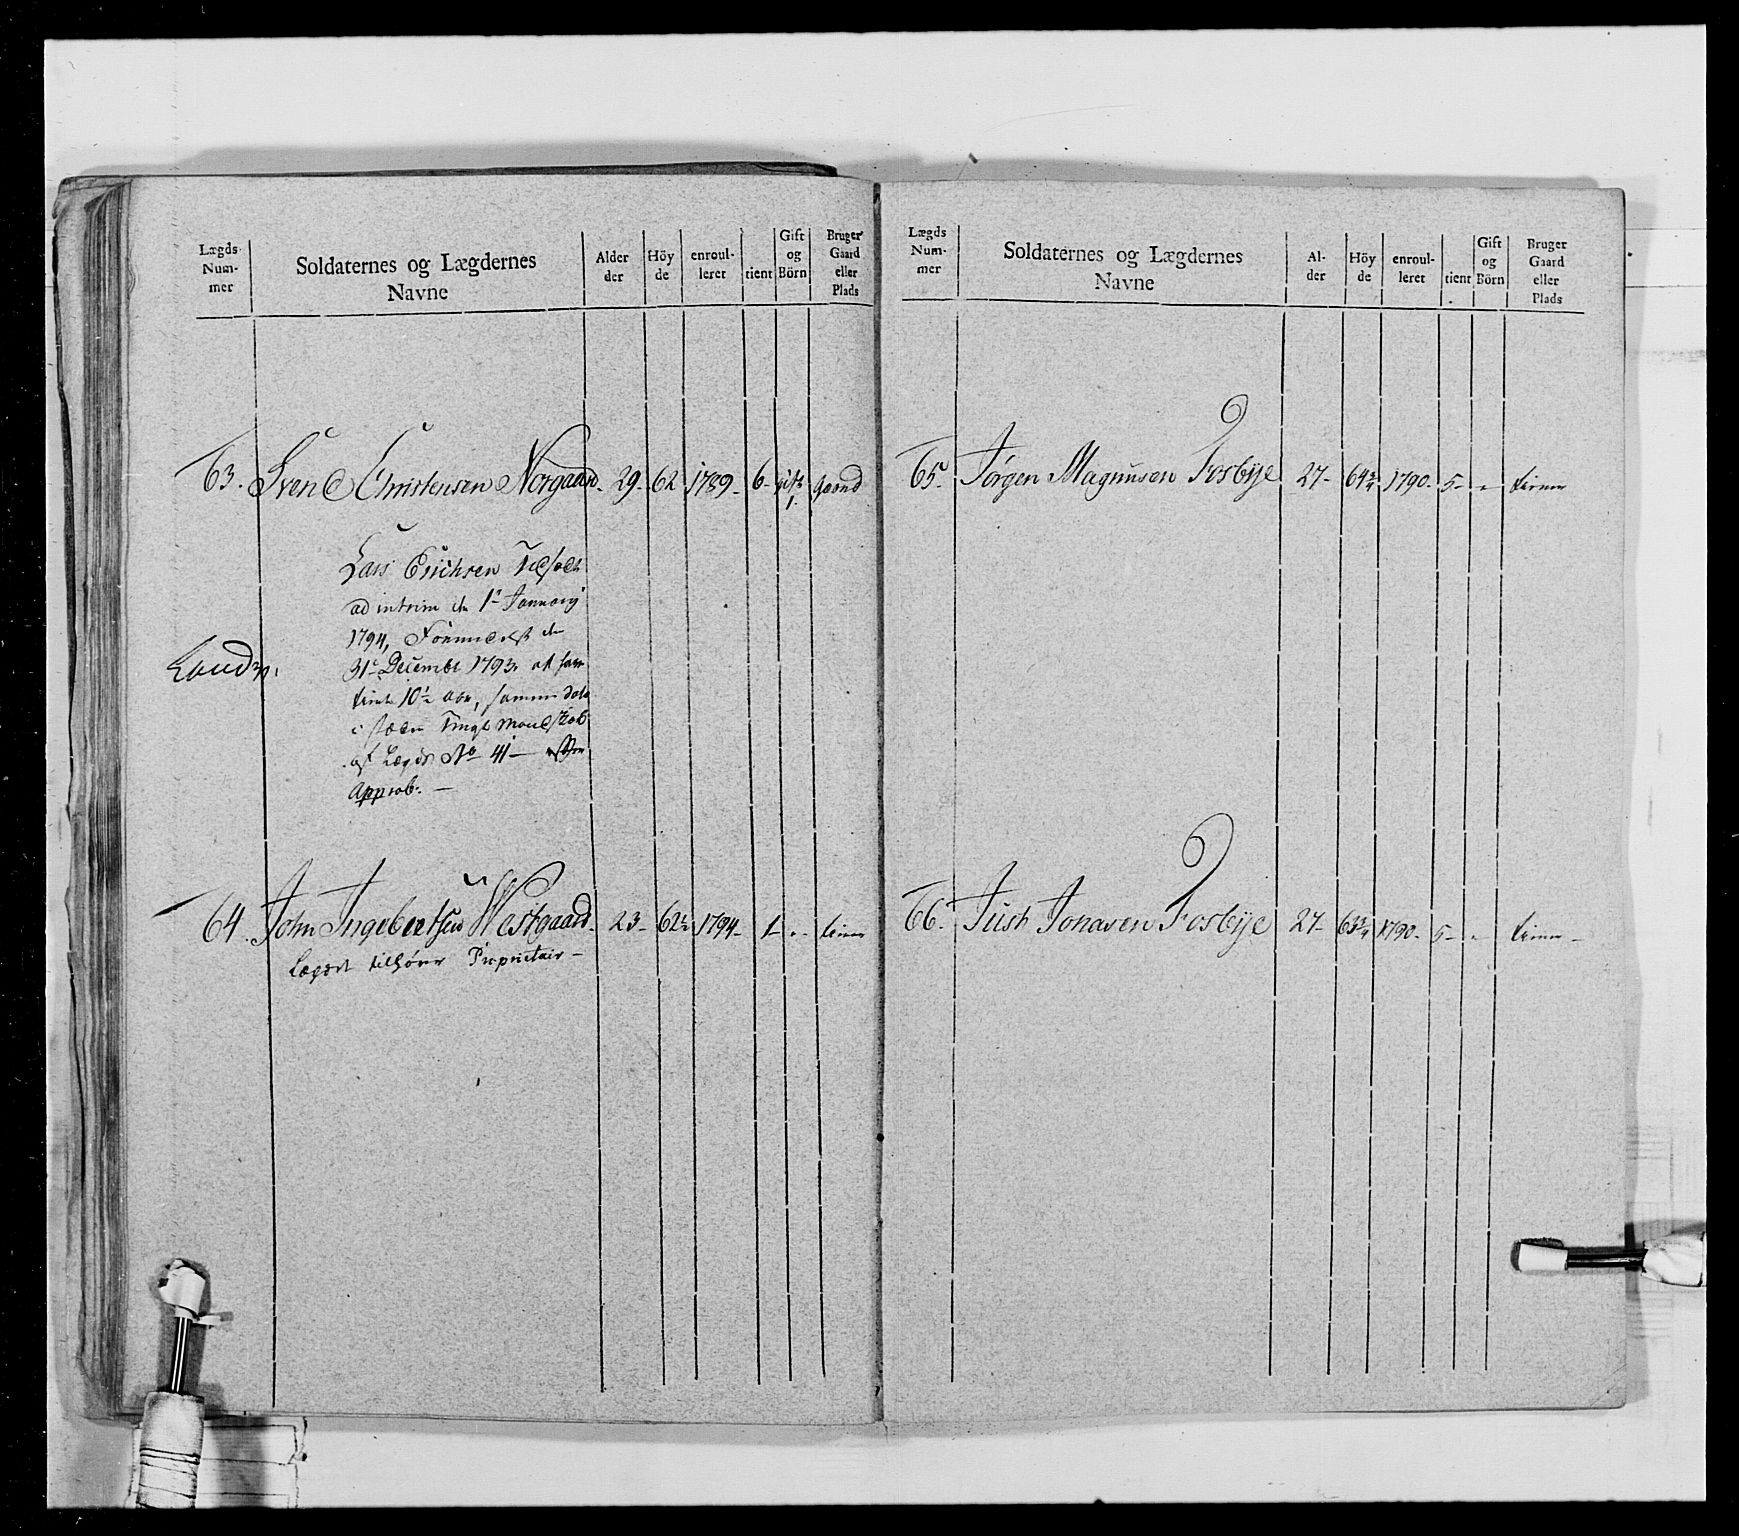 Lægds Num- mer
Soldaternes og Lægdernes Navne
Alder der
Höy de
enroul- leret
tient
Gift og Börn
Bruger Gaard eller Plads
63. Svend Christensen Norgaard. 29. 62 1789. 6. gift 1. Gaard
Lars Erichsen
ad intrim de 1te Januarij
1794,
31te Decembr 1793. at have
tient 10½ Aar, samme Dato
af Lægds No 41 -
Approb. -
64. John Ingebretsen Westgaard. 23 62½ 1794. 1 - tiener
Lægdet tilhörer Proprietair -
Lægds Num- mer
Soldaternes og Lægdernes Navne
Al- der
Höy de
enroul- leret
tient
Gift og Börn
Bruger Gaard eller Plads
65. Jørgen Magnusen Fosbye 27 64¾ 1790. 5 - tiener
66. Just Jonasen Fosbye 27 63¾ 1790. 5 - tiener -